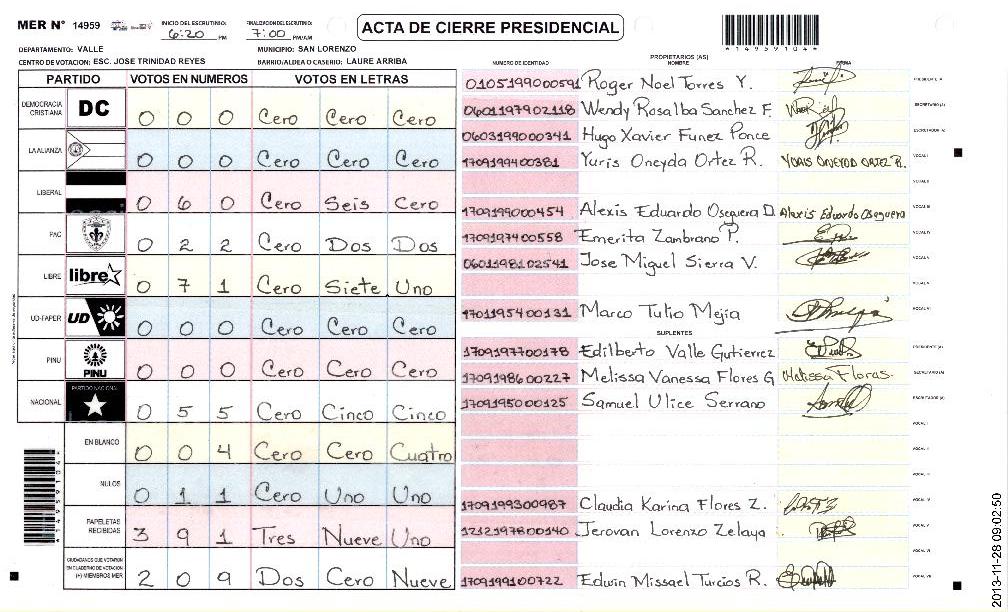 MER Nº 14959
INICIO DEL ESCRUTINIO: 6:20 PM
FINALIZACION DEL ESCRUTINIO: 7:00 PM/AM
ACTA DE CIERRE PRESIDENCIAL
*149591041*
DEPARTAMENTO: VALLE
MUNICIPIO: SAN LORENZO
CENTRO DE VOTACION: ESC. JOSE TRINIDAD REYES
BARRIO/ALDEA O CASERIO: LAURE ARRIBA
PARTIDO VOTOS EN NUMEROS VOTOS EN LETRAS
DEMOCRACIA CRISTIANA DC 0 0 0 Cero Cero Cero
LA ALIANZA 0 0 0 Cero Cero Cero
LIBERAL 0 6 0 Cero Seis Cero
PAC 0 2 2 Cero Dos Dos
LIBRE libre 0 7 1 Cero Siete Uno
UD-FAPER UD 0 0 0 Cero Cero Cero
PINU PINU 0 0 0 Cero Cero Cero
NACIONAL PARTIDO NACIONAL 0 5 5 Cero Cinco Cinco
EN BLANCO 0 0 4 Cero Cero Cuatro
NULOS 0 1 1 Cero Uno Uno
PAPELETAS RECIBIDAS 3 9 1 Tres Nueve Uno
CIUDADANOS QUE VOTARON EN CUADERNO DE VOTACION (+) MIEMBROS MER 2 0 9 Dos Cero Nueve
NUMERO DE IDENTIDAD PROPIETARIOS (AS) NOMBRE FIRMA
0105199000591 Roger Noel Torres Y. PRESIDENTE (A)
0601197902118 Wendy Rosalba Sanchez F. SECRETARIO (A)
0603199000341 Hugo Xavier Funez Ponce ESCRUTADOR (A)
1709199400381 Yuris Oneyda Ortez R. YURIS ONEYDA ORTEZ R. VOCAL I
VOCAL II
1709199000454 Alexis Eduardo Oseguera D. Alexis Eduardo Oseguera VOCAL III
1709197400558 Emerita Zambrano P. VOCAL IV
0601198102541 Jose Miguel Sierra V. VOCAL V
1701195400131 Marco Tulio Mejia
SUPLENTES
1709197700178 Edilberto Valle Gutierrez PRESIDENTE (A)
1709198600227 Melissa Vanessa Flores G Melissa Flores. SECRETARIO (A)
1709195000125 Samuel Ulice Serrano ESCRUTADOR (A)
VOCAL I
VOCAL II
VOCAL III
1709199300987 Claudia Karina Flores Z. VOCAL IV
1232197800140 Jerovan Lorenzo Zelaya VOCAL V
VOCAL VI
1709199100722 Edwin Missael Turcios R. VOCAL VII
2013-11-28 09:02:50